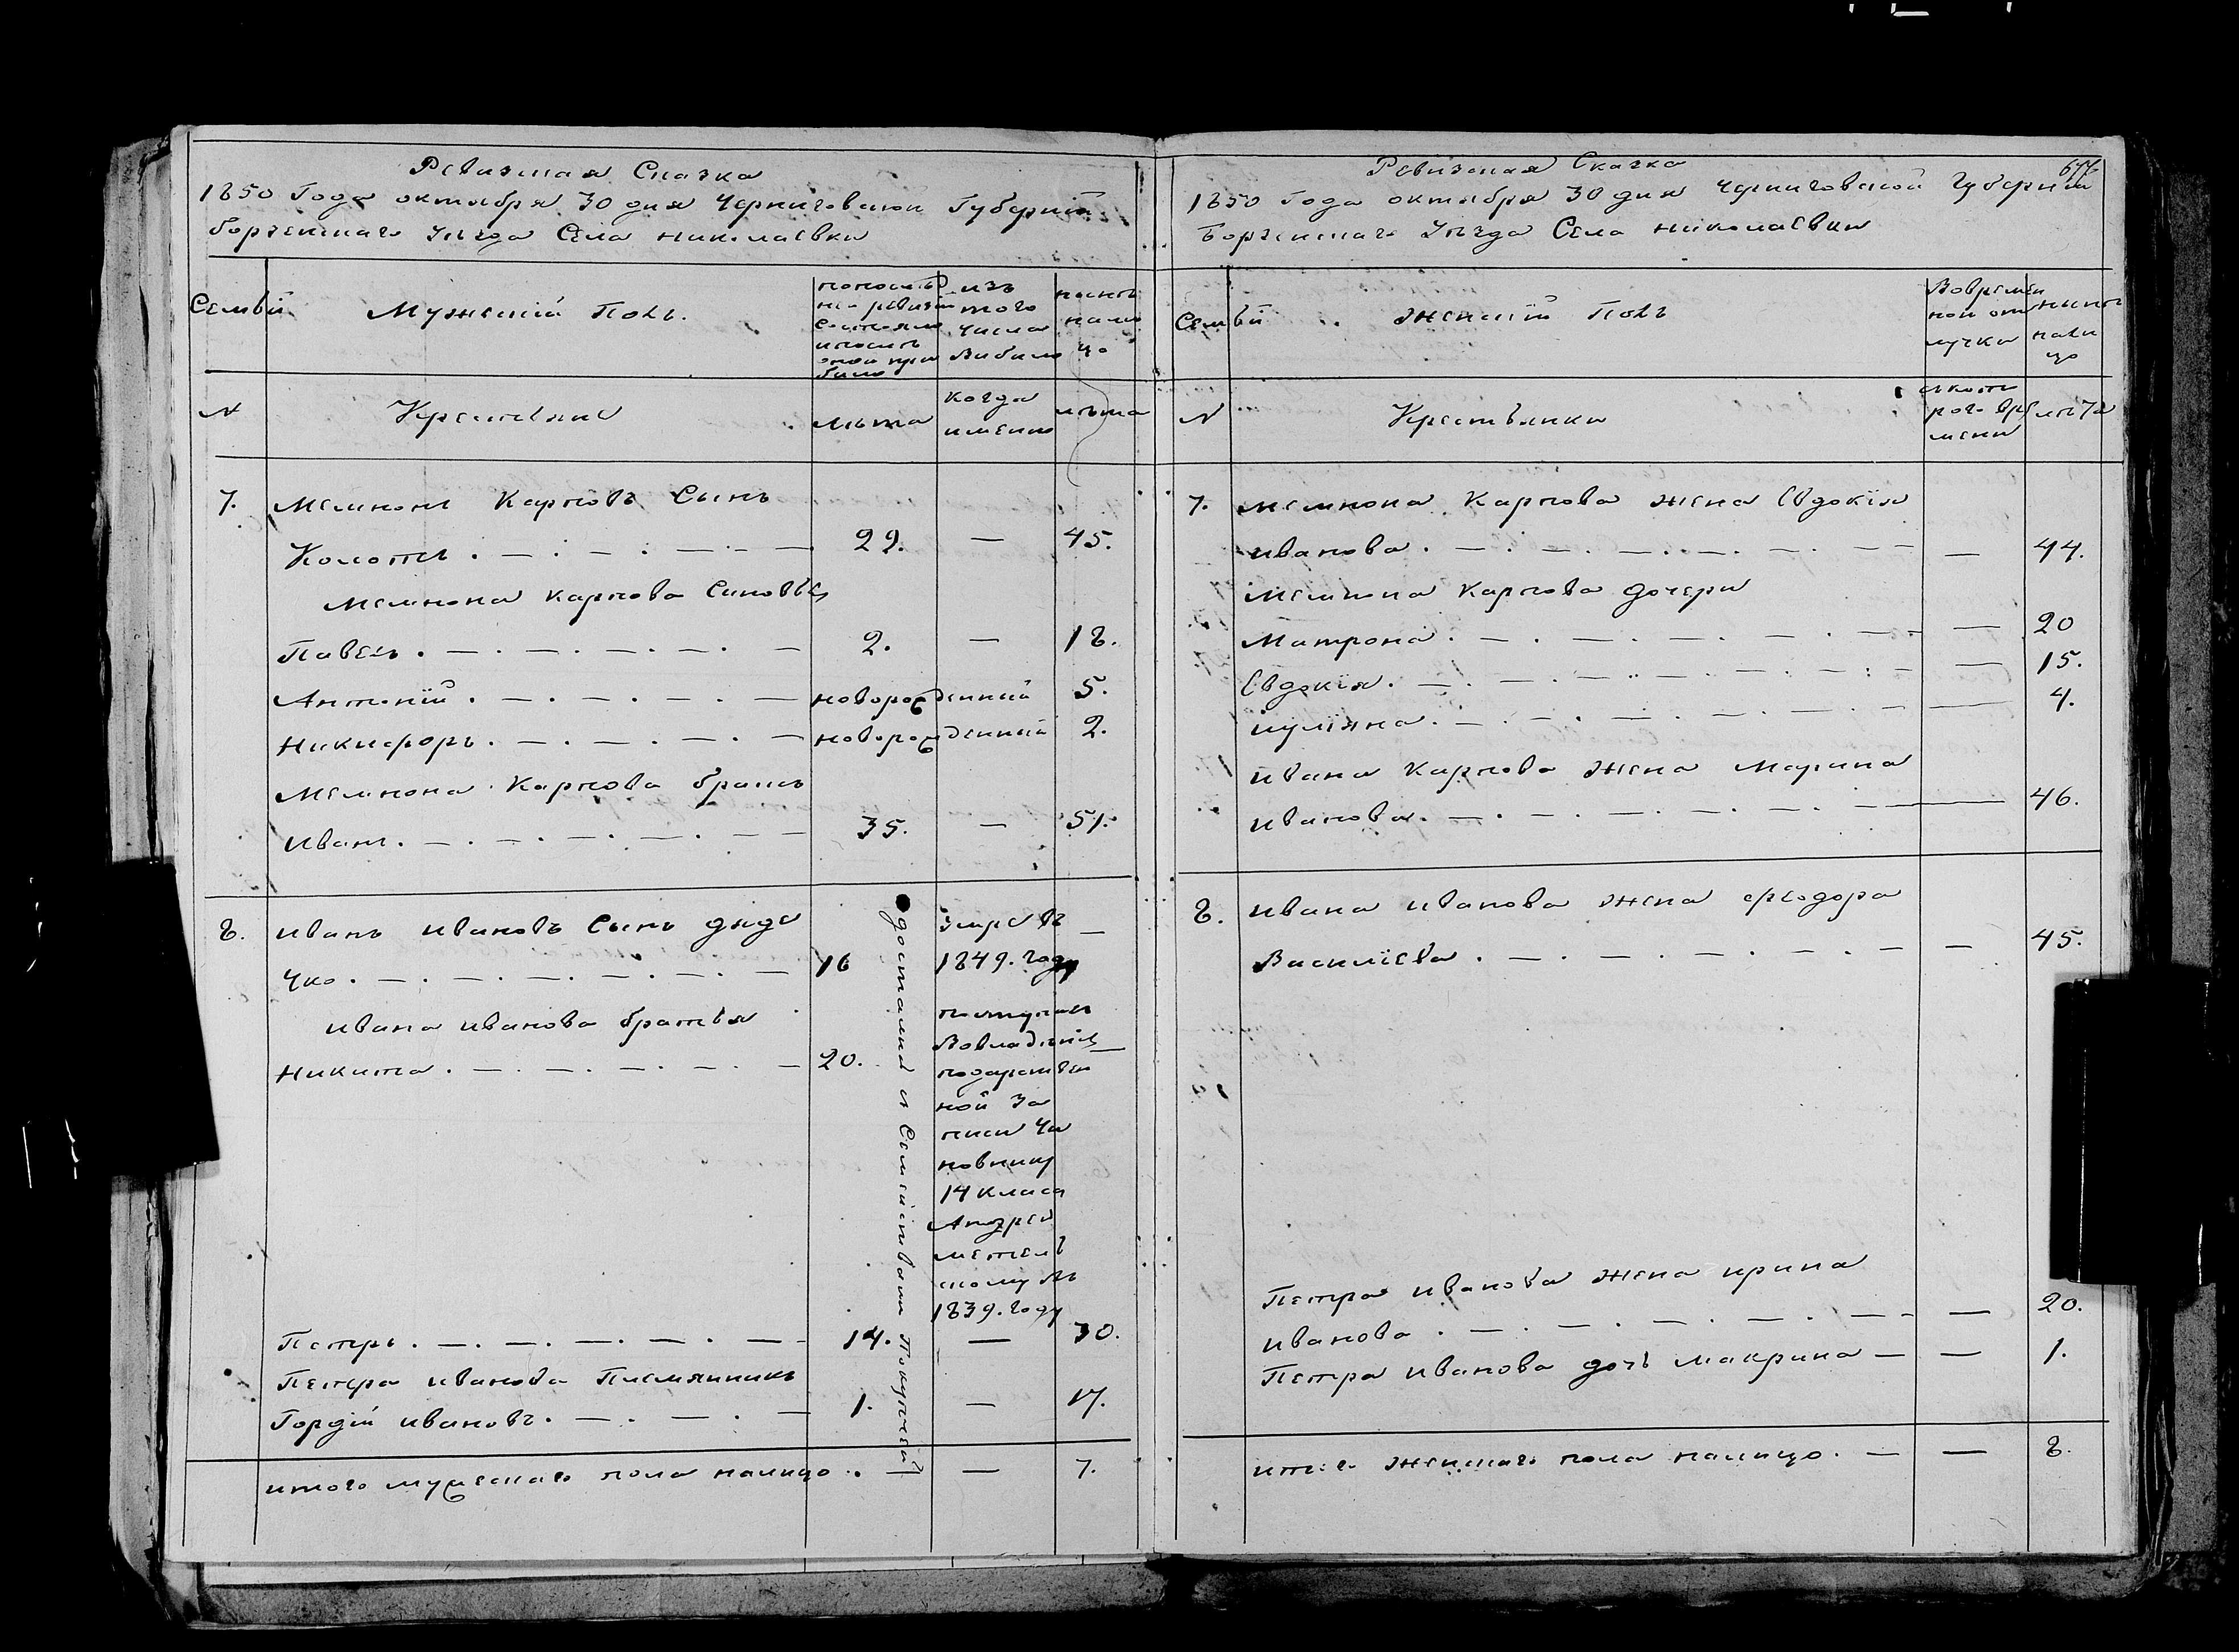 Ревизская Сказка
1850 Года октября 30 дня Черниговской Губерніи
борзенскаго уѣзда Села николаевки
Семьи
Мужескій Полъ.
по послѣд
ней ревизіи
состояло
и послѣ
оной при
было
изъ
того
числа
выбыло
нынѣ
на ли
цо
N
Крестьяне
лѣта
когда
именно
лѣта
7. Мемнонъ Карповъ Сынъ
Колотъ . — . — . — . — 29. — 45.
Мемнона карпова Синовья
Павелъ . — . — . — . — . — 2. — 18.
Антоній . — . — . — . — новорожденній 5.
Никифоръ . — . — . — . — новорожденній 2.
Мемнона Карпова братъ
Иванъ . — . — . — . — 35. — 51.
8. иванъ ивановъ Сынъ дяде
чко . — . — . — . — . — 16
умре въ
1849. году —
ивана иванова братья
Никита . — . — . — . — . — 20.
поступилъ
Во владѣніе —
по дарствен
ной за
писи чи
новнику
14 класа
Андрею
скому въ
1839. году
достались Семействами Покупкой
Петръ . — . — . — . — . — 14. — 30.
Петра иванова Племянникъ
Гордій ивановъ . — . — . — 1. — 17.
итого мужескаго пола налицо . — — 7.
677
Ревизская Сказка
1850 Года октября 30 дня Черниговской Губерніи
Борзенскаго Уѣзда Села николаевки
Семьи
Женскій Полъ
Во времен
ной от
лучки
нынѣ
на ли
цо
N
Крестьянки
съ кото
раго вре
мени
лѣта
7. мемнона Карпова жена Евдокія
иванова . — . — . — . — . — — 44.
мемнона Карпова дочери
Матрона . — . — . — . — . — — 20
Евдокія . — . — . — . — . — — 15.
иуліяна . — . — . — . — . — — 4.
ивана Карпова жена Марина
иванова . — . — . — . — . — 46.
8. ивана иванова жена феодора
Василіева . — . — . — . — . — — 45.
Петра иванова жена ирина
иванова . — . — . — . — . — — 20.
Петра иванова дочь макрина — — 1.
итого женскаго пола налицо . — — 8.